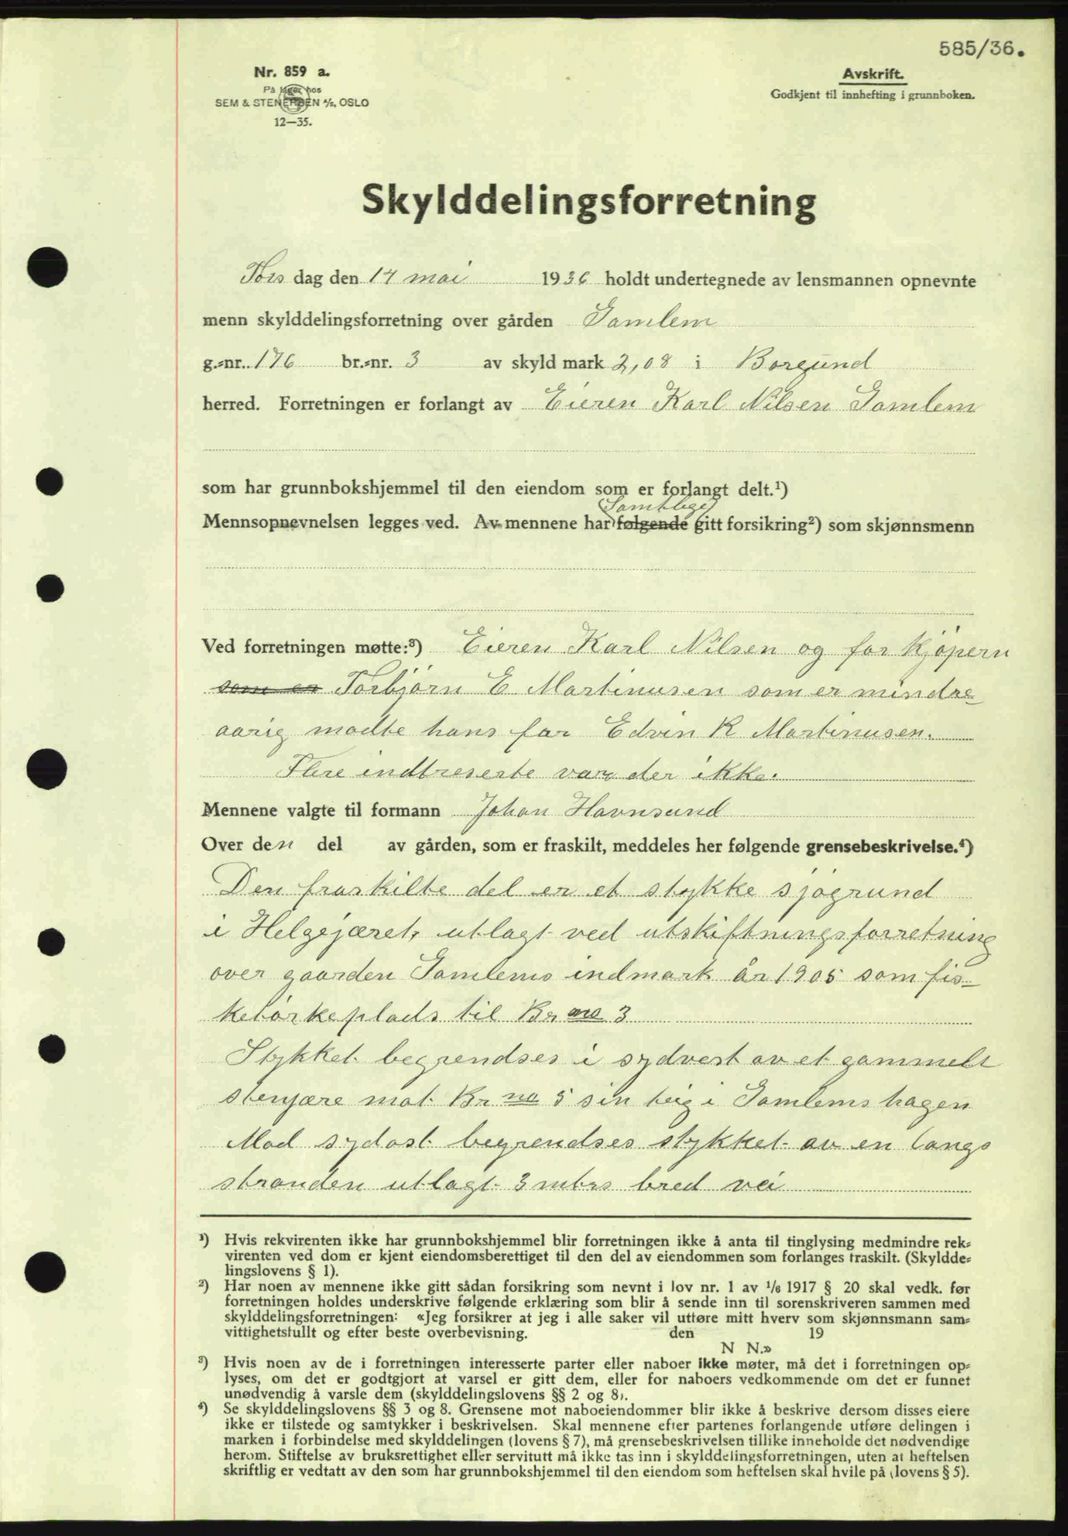 585/36.
Nr. 859 a.
På lager hos
SEM & STENERSEN A/S, OSLO
12—35.
Avskrift.
Godkjent til innhefting i grunnboken.
Skylddelingsforretning
Tors dag den 14 mai 1936 holdt undertegnede av lensmannen opnevnte
menn skylddelingsforretning over gården Gamlem
g.-nr. 176 br.-nr. 3 av skyld mark 2,08 i Borgund
herred. Forretningen er forlangt av Eieren Karl Nilsen Gamlem
som har grunnbokshjemmel til den eiendom som er forlangt delt.¹)
Samtlige
Mennsopnevnelsen legges ved. Av mennene har følgende gitt forsikring²) som skjønnsmenn
Ved forretningen møtte:³) Eieren Karl Nilsen og for kjøpern
som er Torbjørn E Martinusen som er mindre-
aarig mødte hans far Edvin K Martinusen.
Flere indtreserte var der ikke.
Mennene valgte til formann Johan Havnsund
Over den del av gården, som er fraskilt, meddeles her følgende grensebeskrivelse.⁴)
Den fraskilte del er et stykke sjøgrund
i Helgejæret, utlagt ved utskiftningsforretning
over gaarden Gamlems indmark år 1905 som fis-
ketørkeplads til Br no 3
Stykket begrendses i sydvest av et gammelt
stenjære mot Br no 5 sin teig i Gamlemshagen
Mod sydost begrendses stykket av en langs
stranden utlagt 3 mtrs bred vei
¹) Hvis rekvirenten ikke har grunnbokshjemmel blir forretningen ikke å anta til tinglysing medmindre rek-
virenten ved dom er kjent eiendomsberettiget til den del av eiendommen som forlanges fraskilt. (Skyldde-
lingslovens § 1).
²) Har noen av mennene ikke gitt sådan forsikring som nevnt i lov nr. 1 av 1/6 1917 § 20 skal vedk. før
forretningen holdes underskrive følgende erklæring som blir å sende inn til sorenskriveren sammen med
skylddelingsforretningen: «Jeg forsikrer at jeg i alle saker vil utføre mitt hverv som skjønnsmann sam-
vittighetsfullt og efter beste overbevisning. den 19
N N.»
³) Hvis noen av de i forretningen interesserte parter eller naboer ikke møter, må det i forretningen op-
lyses, om det er godtgjort at varsel er gitt dem, eller for naboers vedkommende om det er funnet
unødvendig å varsle dem (skylddelingslovens §§ 2 og 8).
⁴) Se skylddelingslovens §§ 3 og 8. Grensene mot naboeiendommer blir ikke å beskrive dersom disses eiere
ikke er tilstede og samtykker i beskrivelsen. Skal mennene efter partenes forlangende utføre delingen i
marken i forbindelse med skylddelingen (lovens § 7), må grensebeskrivelsen tillike inneholde det nødvendige
herom. Stiftelse av bruksrettighet eller servitutt må ikke tas inn i skylddelingsforretningen, uten at heftelsen
skriftlig er vedtatt av den som har grunnbokshjemmel til den eiendom som heftelsen skal hvile på (lovens § 5).